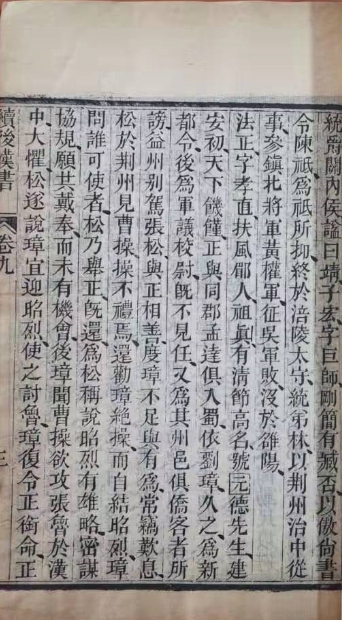 統爵關內侯諡曰靖子宏字巨師剛簡有臧否以傲尚書
令陳祗爲祗所抑終於涪陵太守統弟林以荆州治中從
事參鎮北將軍黃權軍征吳軍敗沒於雒陽
法正字孝直扶風郡人祖真有清節高名號元德先生建
安初天下饑饉正與同郡孟達俱入蜀依劉璋久之爲新
都令後爲軍議校尉旣不見任又爲其州邑俱僑客者所
謗益州别駕張松與正相善度璋不足與有爲常竊歎息
松於荆州見曹操操不禮焉還勸璋絶操而自結昭烈璋
問誰可使者松乃舉正旣還爲松稱說昭烈有雄略密謀
協規願共戴奉而未有機會後璋聞曹操欲攻張魯於漢
中大懼松遂說璋宜迎昭烈使之討魯璋復令正銜命正
續後漢書 卷九 三